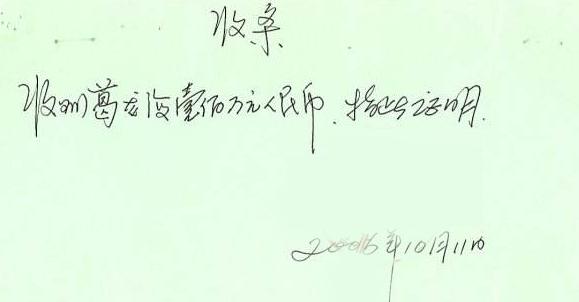 收条
收到葛龙海壹佰万元人民币.特此证明.
2006年10月11日